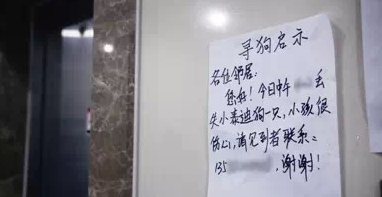 寻狗启示
各位邻居:
您好!今日中午 丢
失小泰迪狗一只,小孩很
伤心,请见到者联系:
135 ,谢谢!